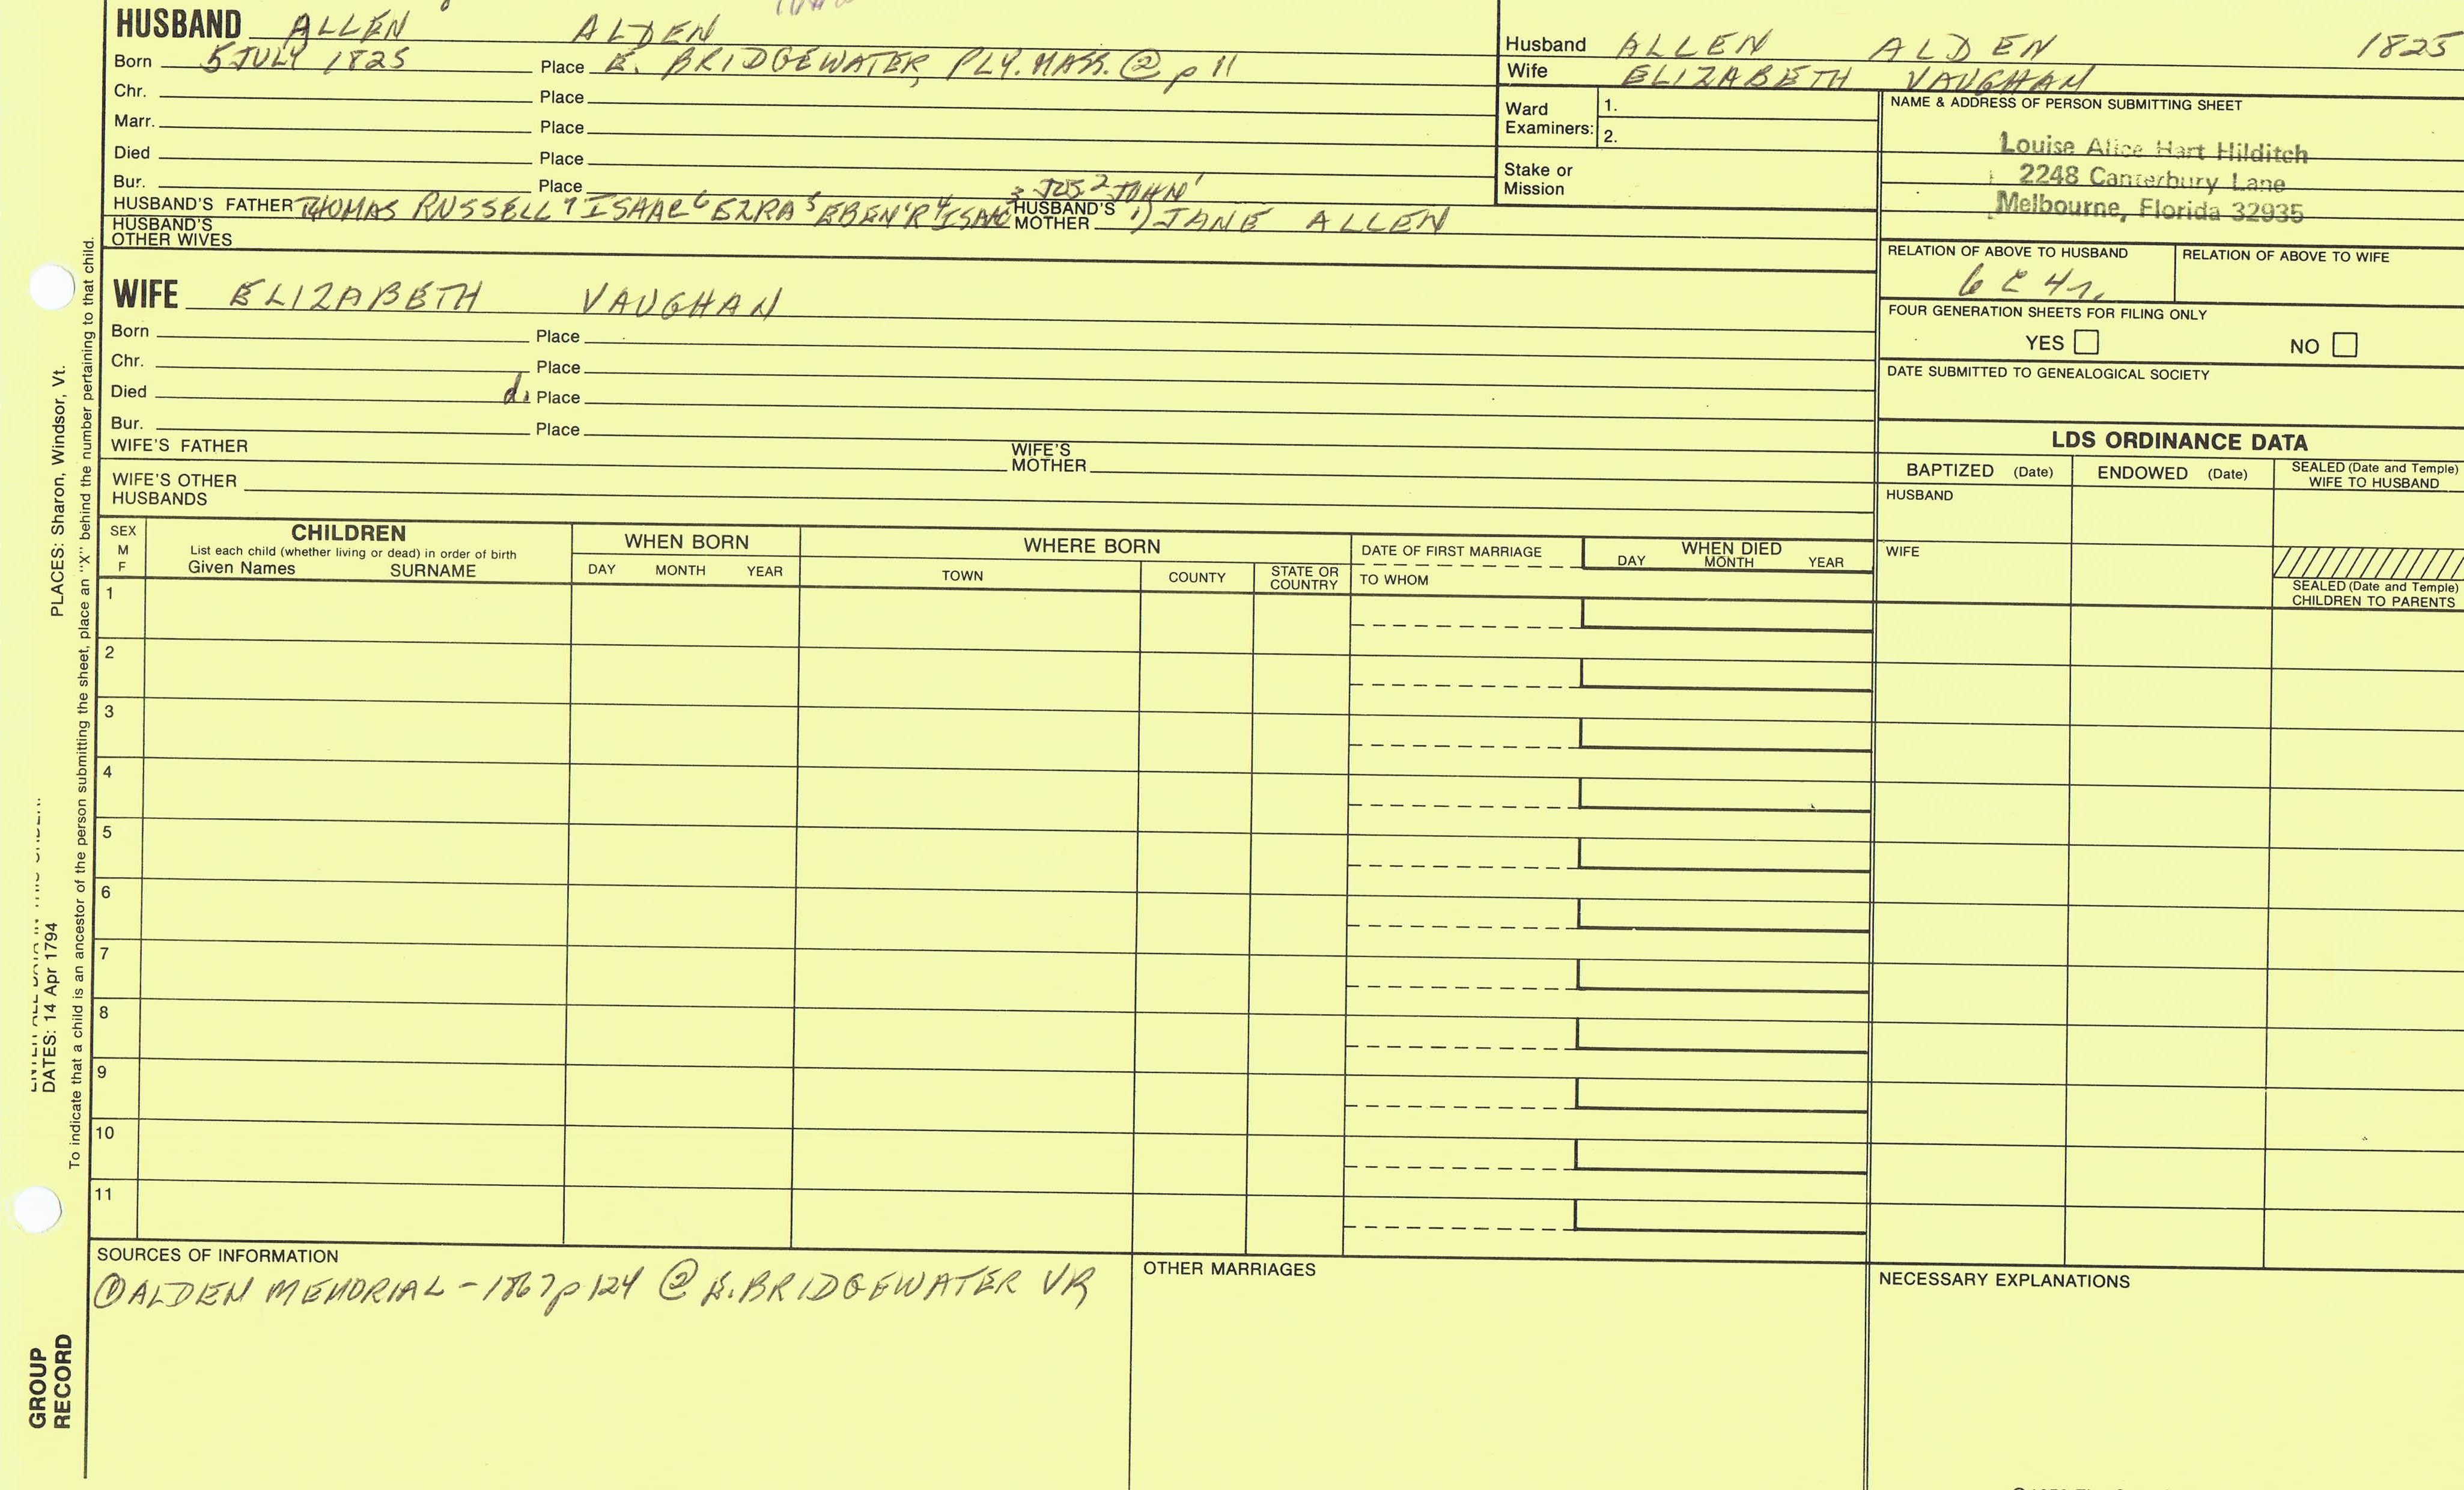 HUSBAND ALLEN ALDEN
Born 5 JULY 1825 Place E. BRIDGEWATER, PLY. MASS. ② p 11
Chr. Place
Marr. Place
Died Place
Bur. Place
3 JOS 2 JOHN 1
HUSBAND'S FATHER THOMAS RUSSELL 7 ISAAC 6 EZRA 5 EBEN'R 4 ISAAC HUSBAND'S MOTHER 1) JANE ALLEN
HUSBAND'S OTHER WIVES
Husband ALLEN ALDEN 1825
Wife ELIZABETH VAUGHAN
Ward Examiners: 1.
2.
Stake or Mission
NAME & ADDRESS OF PERSON SUBMITTING SHEET
Louise Alice Hart Hilditch
2248 Canterbury Lane
Melbourne, Florida 32935
RELATION OF ABOVE TO HUSBAND RELATION OF ABOVE TO WIFE
6 C 4 r.
FOUR GENERATION SHEETS FOR FILING ONLY
YES NO
DATE SUBMITTED TO GENEALOGICAL SOCIETY
WIFE ELIZABETH VAUGHAN
Born Place
Chr. Place
Died d. Place
Bur. Place
WIFE'S FATHER WIFE'S MOTHER
WIFE'S OTHER HUSBANDS
LDS ORDINANCE DATA
BAPTIZED (Date) ENDOWED (Date) SEALED (Date and Temple) WIFE TO HUSBAND
HUSBAND
WIFE
SEALED (Date and Temple) CHILDREN TO PARENTS
SEX M F
CHILDREN
List each child (whether living or dead) in order of birth
Given Names SURNAME
WHEN BORN
DAY MONTH YEAR
WHERE BORN
TOWN COUNTY STATE OR COUNTRY
DATE OF FIRST MARRIAGE
TO WHOM
WHEN DIED
DAY MONTH YEAR
1
2
3
4
5
6
7
8
9
10
11
SOURCES OF INFORMATION
① ALDEN MEMORIAL - 1867 p 124 ② E. BRIDGEWATER VR
OTHER MARRIAGES
NECESSARY EXPLANATIONS
PLACES: Sharon, Windsor, Vt.
DATES: 14 Apr 1794
To indicate that a child is an ancestor of the person submitting the sheet, place an "X" behind the number pertaining to that child.
GROUP
RECORD